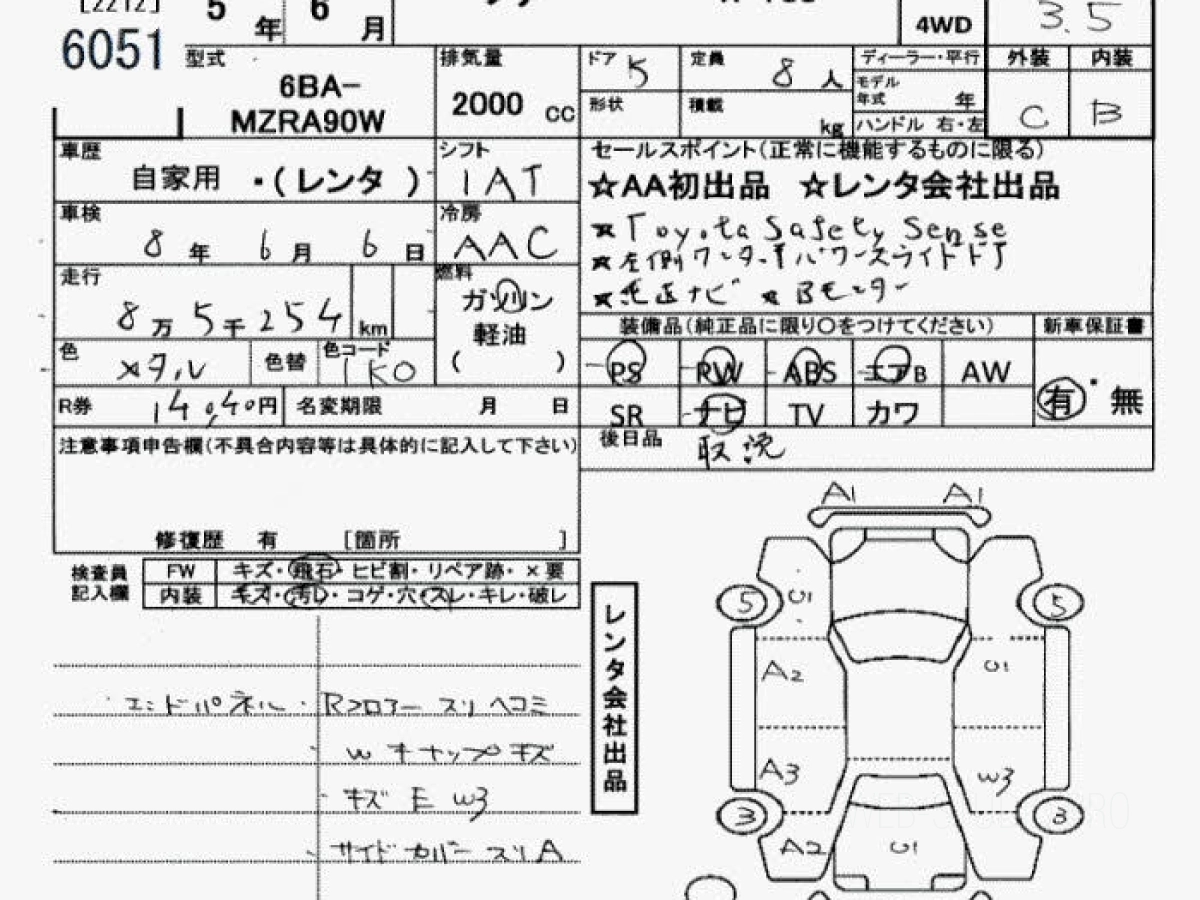 [2212]
5 年 6 月
6051
4WD
3.5
型式
6BA-
MZRA90W
排気量
2000 cc
ドア 5
定員 8 人
形状
積載 kg
ディーラー・平行
モデル
年式 年
ハンドル 右・左
外装 内装
C B
車歴
自家用 ・(レンタ )
シフト
IAT
車検
8 年 6 月 6 日
冷房
AAC
走行
8 万 5 千 254 km
燃料
ガソリン
軽油
( )
色
メタル
色替
色コード
1K0
R券
円
名変期限 月 日
セールスポイント(正常に機能するものに限る)
☆AA初出品 ☆レンタ会社出品
★Toyota Safety Sense
★左側ワンタッチパワースライドドア
★純正ナビ ★Bモニター
装備品(純正品に限り○をつけてください)
新車保証書
PS PW ABS エアB AW
有・無
SR ナビ TV カワ
後日品
取説
注意事項申告欄(不具合内容等は具体的に記入して下さい)
修復歴 有 [箇所 ]
検査員
記入欄
FW キズ・飛石・ヒビ割・リペア跡・×要
内装 キズ・汚レ・コゲ・穴・スレ・キレ・破レ
エンドパネル・Rフロアースリヘコミ
Wキャップキズ
キズ E W3
サイドカバースリA
レンタ会社出品
A1 A1
5 U1 5
A2 U1
A3 W3
3 3
A2 U1